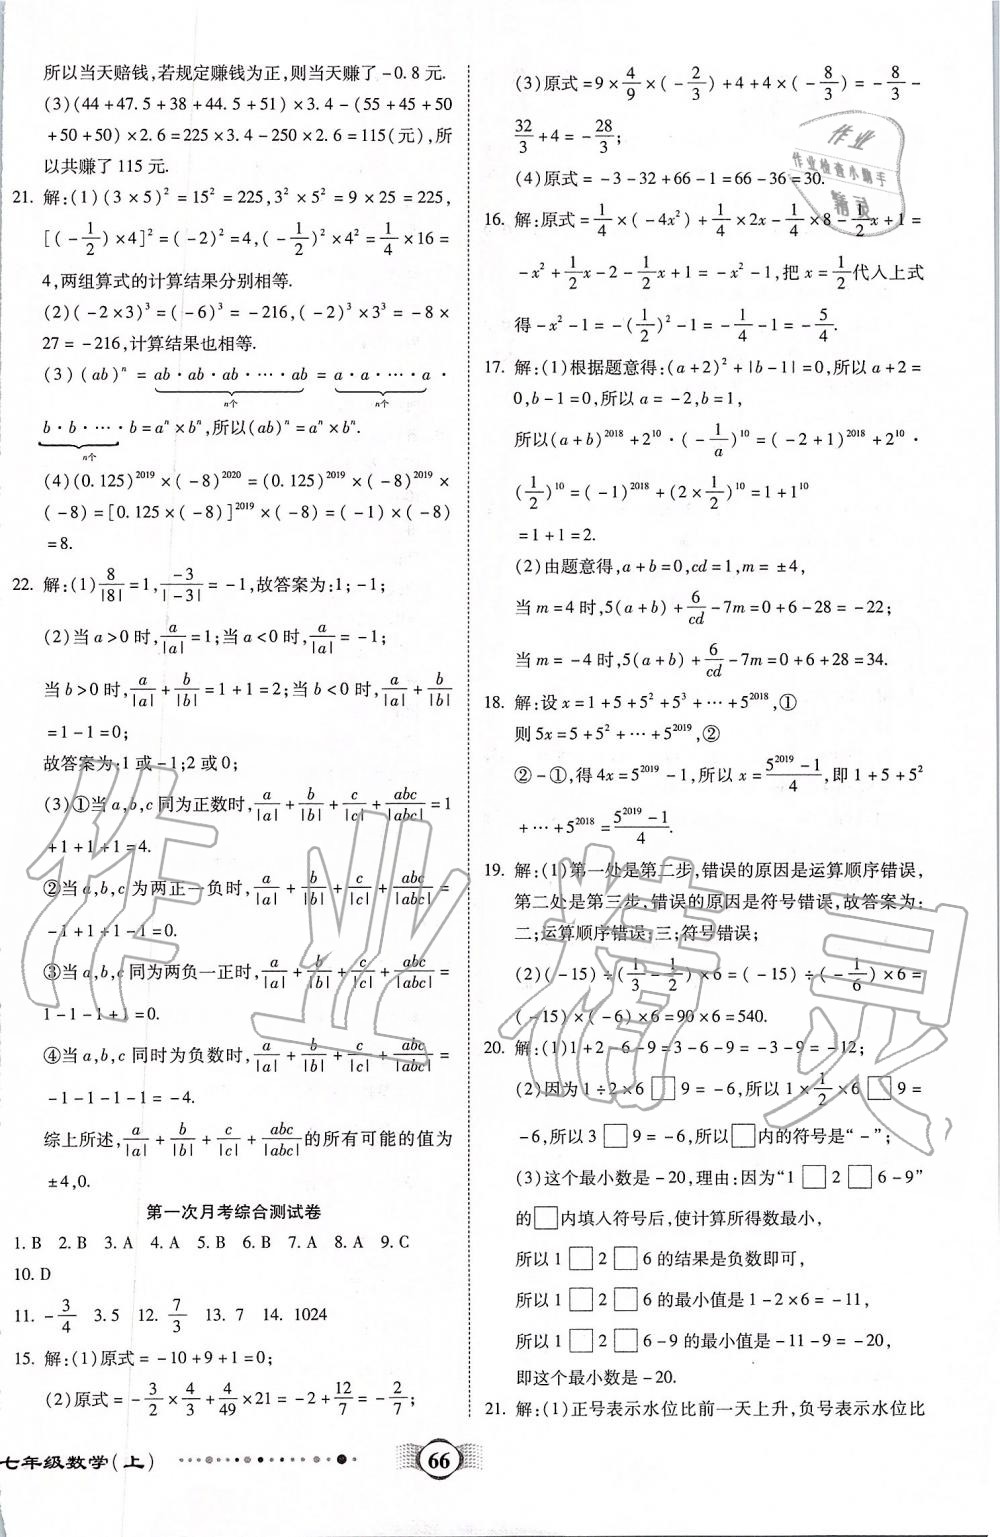 所以当天赔钱,若规定赚钱为正,则当天赚了-0.8元.
(3)(44+47.5+38+44.5+51)×3.4-(55+45+50
+50+50)×2.6=225×3.4-250×2.6=115(元),所
以共赚了115元.
21. 解:(1)(3×5)²=15²=225,3²×5²=9×25=225,
[(-1/2)×4]²=(-2)²=4,(-1/2)²×4²=1/4×16=
4,两组算式的计算结果分别相等.
(2)(-2×3)³=(-6)³=-216,(-2)³×3³=-8×
27=-216,计算结果也相等.
(3)(ab)ⁿ=ab·ab·ab·…·ab=a·a·…·a·
n个 n个
b·b·…·b=aⁿ×bⁿ,所以(ab)ⁿ=aⁿ×bⁿ.
n个
(4)(0.125)²⁰¹⁹×(-8)²⁰²⁰=(0.125)²⁰¹⁹×(-8)²⁰¹⁹×
(-8)=[0.125×(-8)]²⁰¹⁹×(-8)=(-1)×(-8)
=8.
22. 解:(1)8/|8|=1,-3/|-3|=-1,故答案为:1;-1;
(2)当a>0时,a/|a|=1;当a<0时,a/|a|=-1;
当b>0时,a/|a|+b/|b|=1+1=2;当b<0时,a/|a|+b/|b|
=1-1=0;
故答案为:1或-1;2或0;
(3)①当a,b,c同为正数时,a/|a|+b/|b|+c/|c|+abc/|abc|=1
+1+1+1=4.
②当a,b,c为两正一负时,a/|a|+b/|b|+c/|c|+abc/|abc|=
-1+1+1-1=0.
③当a,b,c同为两负一正时,a/|a|+b/|b|+c/|c|+abc/|abc|=
1-1-1+1=0.
④当a,b,c同时为负数时,a/|a|+b/|b|+c/|c|+abc/|abc|=
-1-1-1-1=-4.
综上所述,a/|a|+b/|b|+c/|c|+abc/|abc|的所有可能的值为
±4,0.
第一次月考综合测试卷
1. B 2. B 3. A 4. A 5. B 6. B 7. A 8. A 9. C
10. D
11. -3/4 3.5 12. 7/3 13. 7 14. 1024
15. 解:(1)原式=-10+9+1=0;
(2)原式=-3/2×4/3+4/49×21=-2+12/7=-2/7;
(3)原式=9×4/9×(-2/3)+4+4×(-8/3)=-8/3-
32/3+4=-28/3;
(4)原式=-3-32+66-1=66-36=30.
16. 解:原式=1/4×(-4x²)+1/4×2x-1/4×8-1/2x+1=
-x²+1/2x-2-1/2x+1=-x²-1,把x=1/2代入上式
得-x²-1=-(1/2)²-1=-1/4-1=-5/4.
17. 解:(1)根据题意得:(a+2)²+|b-1|=0,所以a+2=
0,b-1=0,所以a=-2,b=1,
所以(a+b)²⁰¹⁸+2¹⁰·(-1/a)¹⁰=(-2+1)²⁰¹⁸+2¹⁰·
(1/2)¹⁰=(-1)²⁰¹⁸+(2×1/2)¹⁰=1+1¹⁰
=1+1=2.
(2)由题意得,a+b=0,cd=1,m=±4,
当m=4时,5(a+b)+6/cd-7m=0+6-28=-22;
当m=-4时,5(a+b)+6/cd-7m=0+6+28=34.
18. 解:设x=1+5+5²+5³+…+5²⁰¹⁸,①
则5x=5+5²+…+5²⁰¹⁹,②
②-①,得4x=5²⁰¹⁹-1,所以x=(5²⁰¹⁹-1)/4,即1+5+5²
+…+5²⁰¹⁸=(5²⁰¹⁹-1)/4.
19. 解:(1)第一处是第二步,错误的原因是运算顺序错误,
第二处是第三步,错误的原因是符号错误,故答案为:
二;运算顺序错误;三;符号错误;
(2)(-15)÷(1/3-1/2)×6=(-15)÷(-1/6)×6=
(-15)×(-6)×6=90×6=540.
20. 解:(1)1+2-6-9=3-6-9=-3-9=-12;
(2)因为1÷2×6□9=-6,所以1×1/2×6□9=
-6,所以3□9=-6,所以□内的符号是“-”;
(3)这个最小数是-20,理由:因为“1□2□6-9”
的□内填入符号后,使计算所得数最小,
所以1□2□6的结果是负数即可,
所以1□2□6的最小值是1-2×6=-11,
所以1□2□6-9的最小值是-11-9=-20,
即这个最小数是-20.
21. 解:(1)正号表示水位比前一天上升,负号表示水位比
七年级数学(上)
66
作业
作业检查小助手
精灵
作业精灵